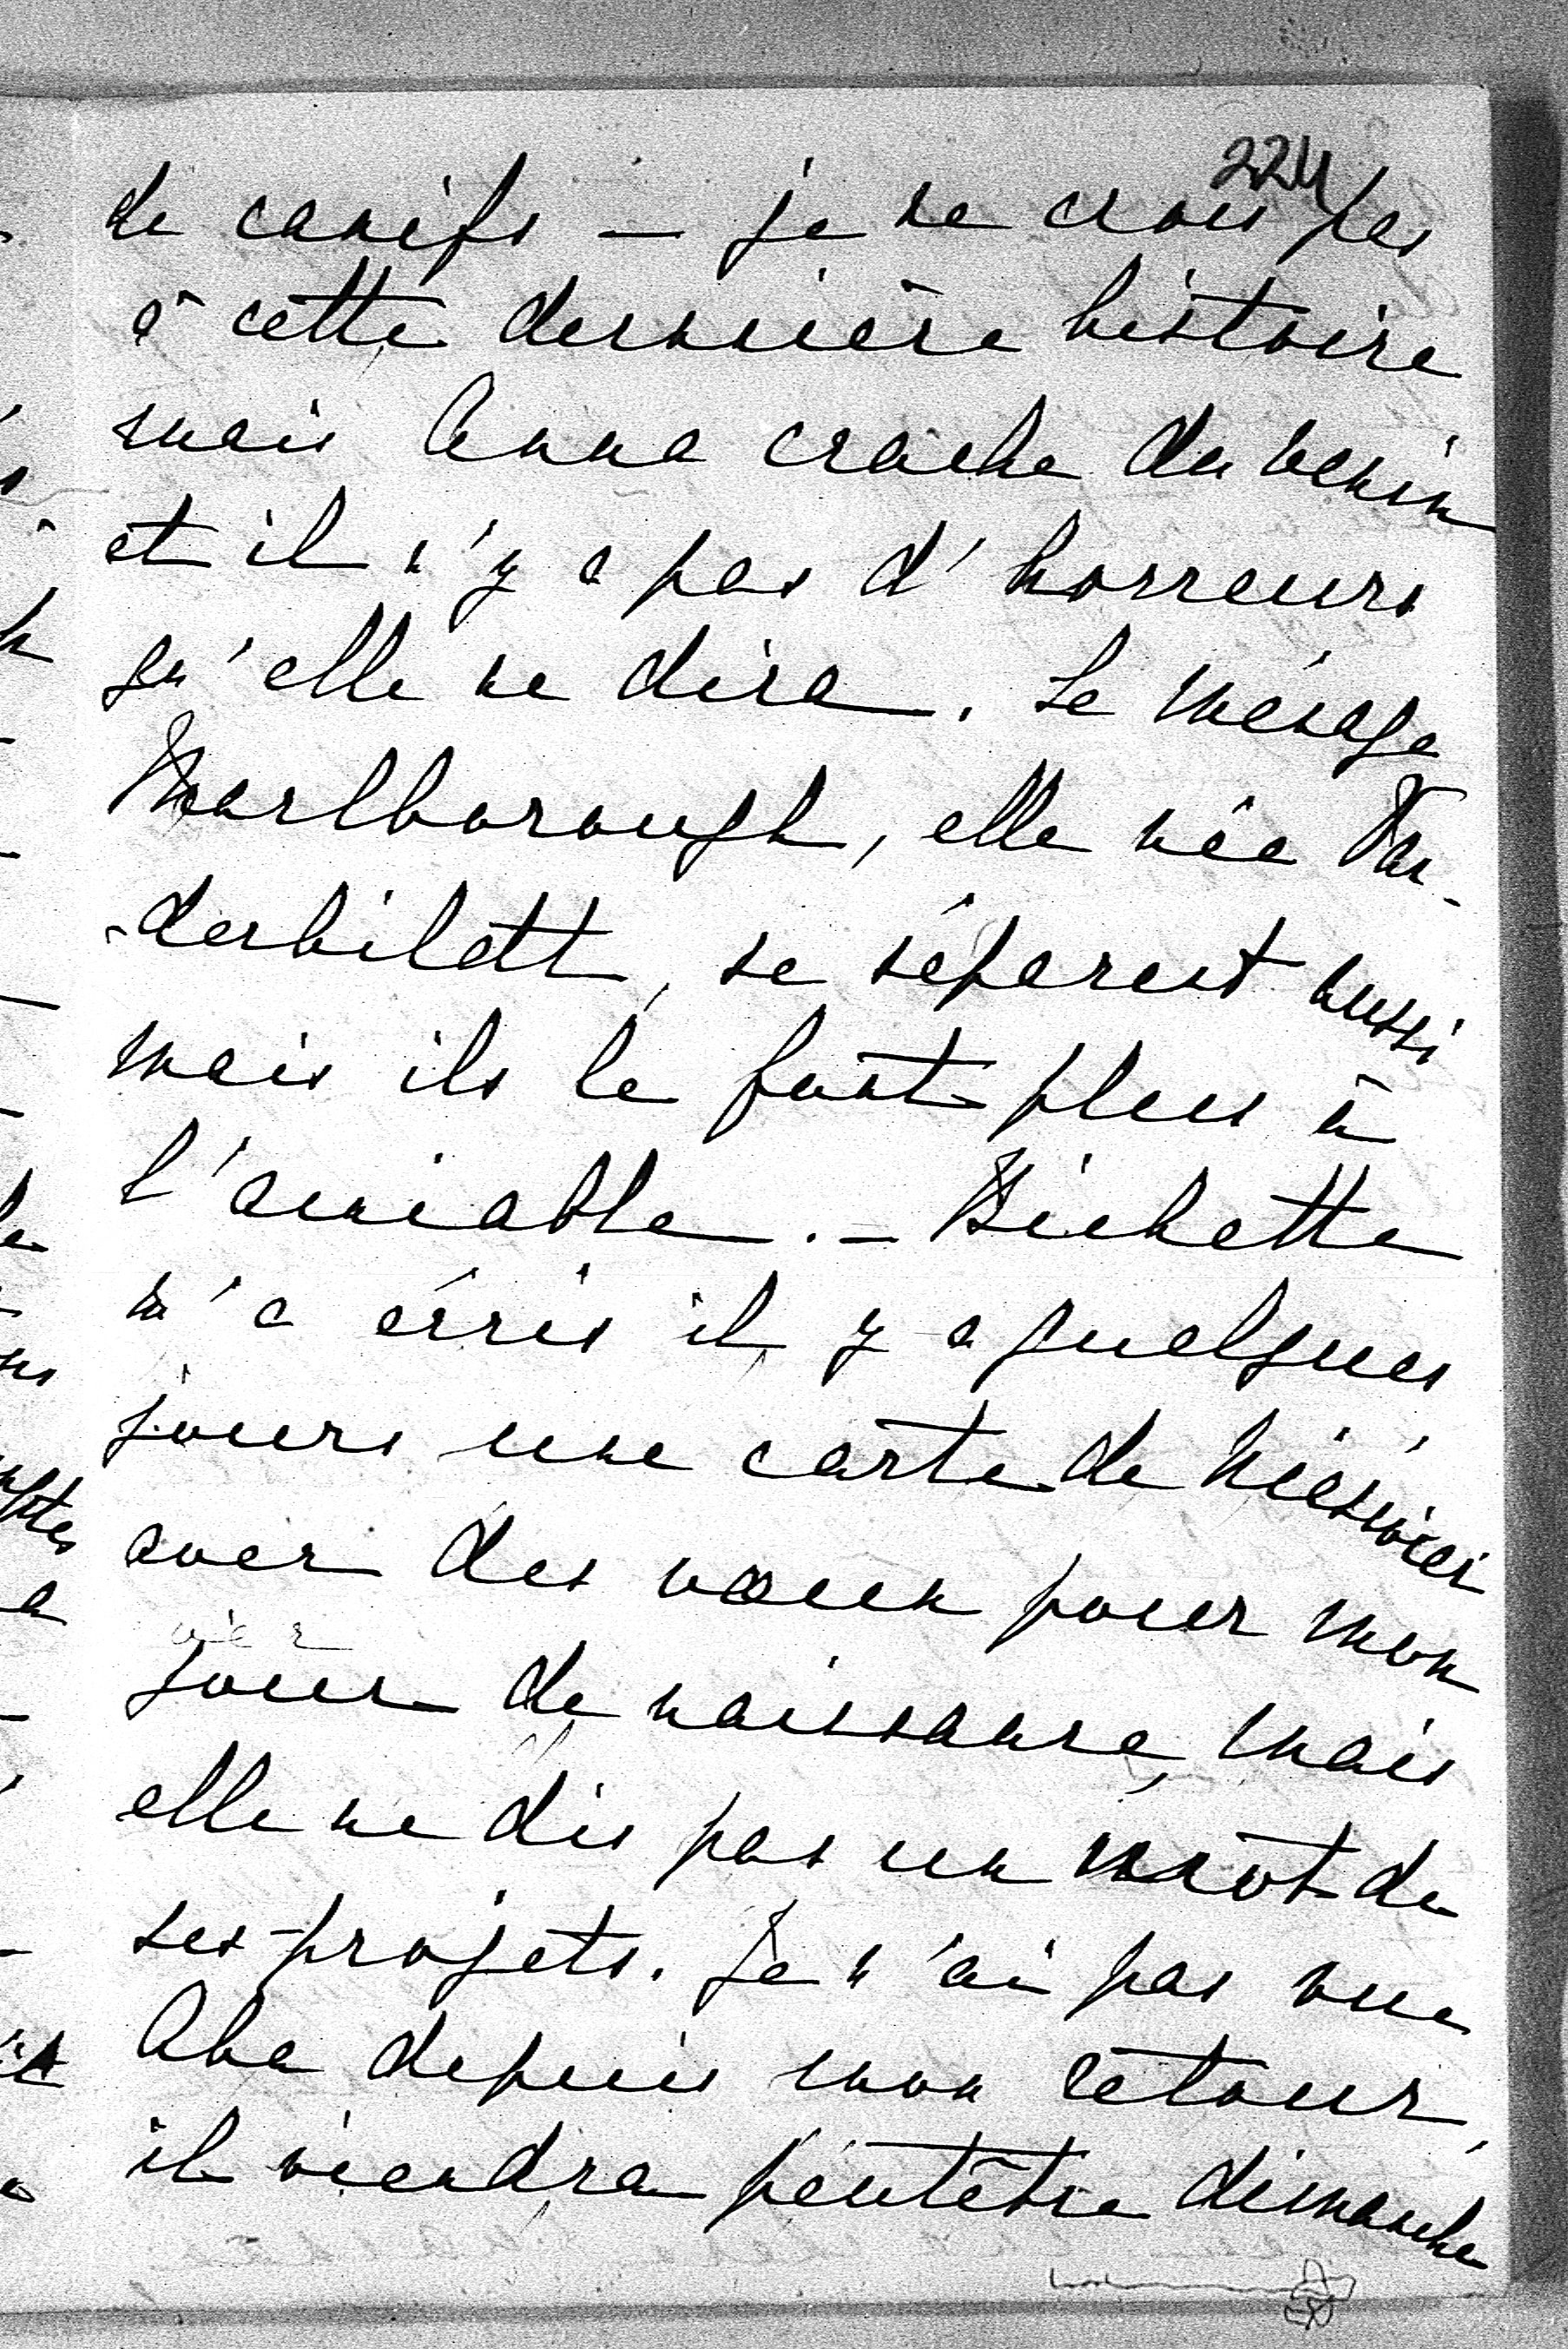 224
de canifs — je ne crois pas
à cette dernière histoire
mais Anna crache du venin
et il n'y a pas d'horreurs
qu'elle ne dira. Le ménage
Marlborough, elle née Van-
-derbildtt, se séparent aussi
mais ils le font plus à
l'amiable. — Bichette
m'a écris il y a quelques
jours une carte de Niéswież
avec des voeux pour mon
jour de naissance, mais
elle ne dis pas un mot de
ses projets. Je n'ai pas vue
Aba depuis mon retour,
il viendra peutêtre dimanche